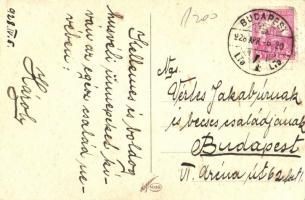 1928. IV. 5.
Kellemes és boldog
husvéti ünnepeket ki-
ván az egész család ne-
vében:
Károly
1200
BUDAPEST
928 ÁPR
Nzs.
Vértes Jakabúrnak
és becses családjának
Budapest
VI. Aréna út 62.